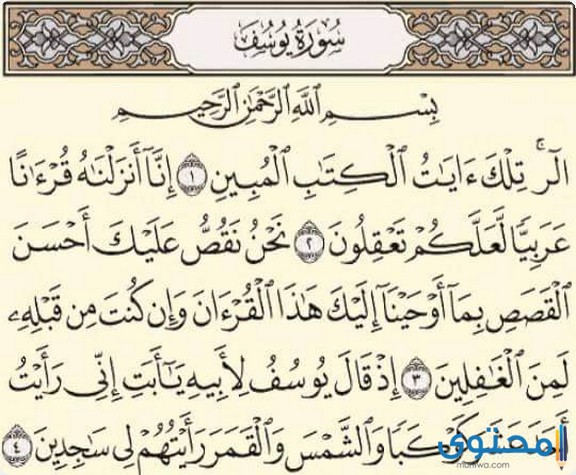 سُورَةُ يُوسُفَ
بِسْمِ اللَّهِ الرَّحْمَٰنِ الرَّحِيمِ
الٓرۚ تِلْكَ ءَايَٰتُ ٱلْكِتَٰبِ ٱلْمُبِينِ ١ إِنَّآ أَنزَلْنَٰهُ قُرْءَٰنًا
عَرَبِيًّا لَّعَلَّكُمْ تَعْقِلُونَ ٢ نَحْنُ نَقُصُّ عَلَيْكَ أَحْسَنَ
ٱلْقَصَصِ بِمَآ أَوْحَيْنَآ إِلَيْكَ هَٰذَا ٱلْقُرْءَانَ وَإِن كُنتَ مِن قَبْلِهِۦ
لَمِنَ ٱلْغَٰفِلِينَ ٣ إِذْ قَالَ يُوسُفُ لِأَبِيهِ يَٰٓأَبَتِ إِنِّي رَأَيْتُ
كَوْكَبًا وَٱلشَّمْسَ وَٱلْقَمَرَ رَأَيْتُهُمْ لِي سَٰجِدِينَ ٤
المحتوى
muhtwa.com